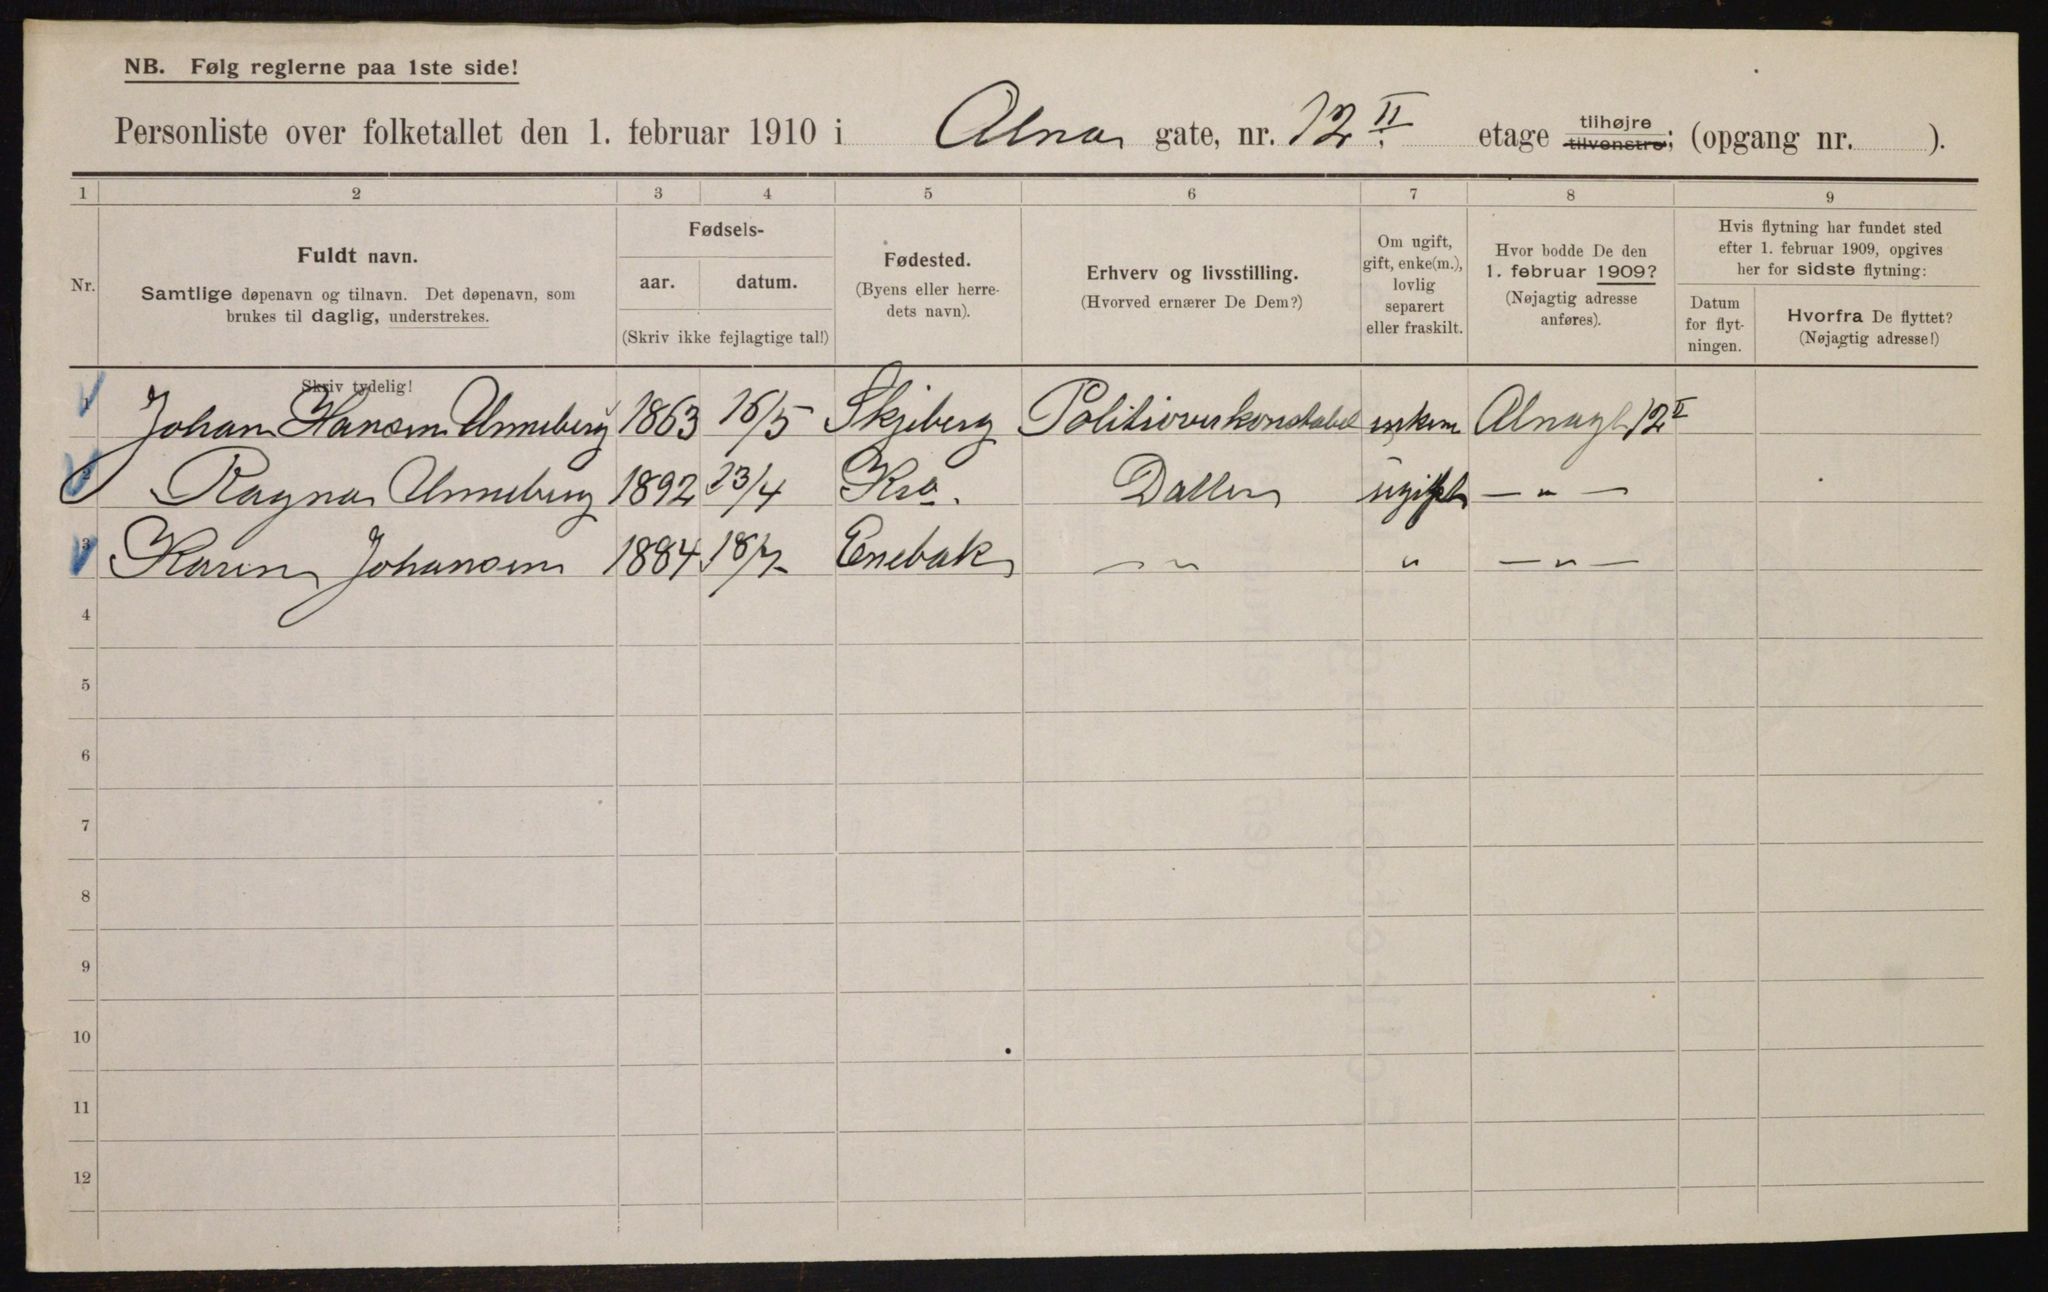 NB. Følg reglerne paa 1ste side!
Personliste over folketallet den 1. februar 1910 i Alna gate, nr. 12 II. etage tilhøjre tilvenstre; (opgang nr. ).
1 2 3 4 5 6 7 8 9
Nr.
Fuldt navn.
Samtlige døpenavn og tilnavn. Det døpenavn, som
brukes til daglig, understrekes.
Skriv tydelig!
Fødsels-
aar. datum.
(Skriv ikke fejlagtige tal!)
Fødested.
(Byens eller herre-
dets navn).
Erhverv og livsstilling.
(Hvorved ernærer De Dem?)
Om ugift,
gift, enke(m.),
lovlig
separert
eller fraskilt.
Hvor bodde De den
1. februar 1909?
(Nøjagtig adresse
anføres).
Hvis flytning har fundet sted
efter 1. februar 1909, opgives
her for sidste flytning:
Datum
for flyt-
ningen.
Hvorfra De flyttet?
(Nøjagtig adresse!)
1 Johan Hansen Unneberg 1863 16/5 Skjeberg Politioverkonstabel enkem Alnagt 12 II
2 Ragna Unneberg 1892 23/4 Kra. Datter ugift — " —
3 Karen Johansen 1884 18/7 Enebak — " " — " —
4
5
6
7
8
9
10
11
12